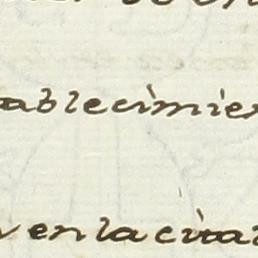 ablecimien
en la citad